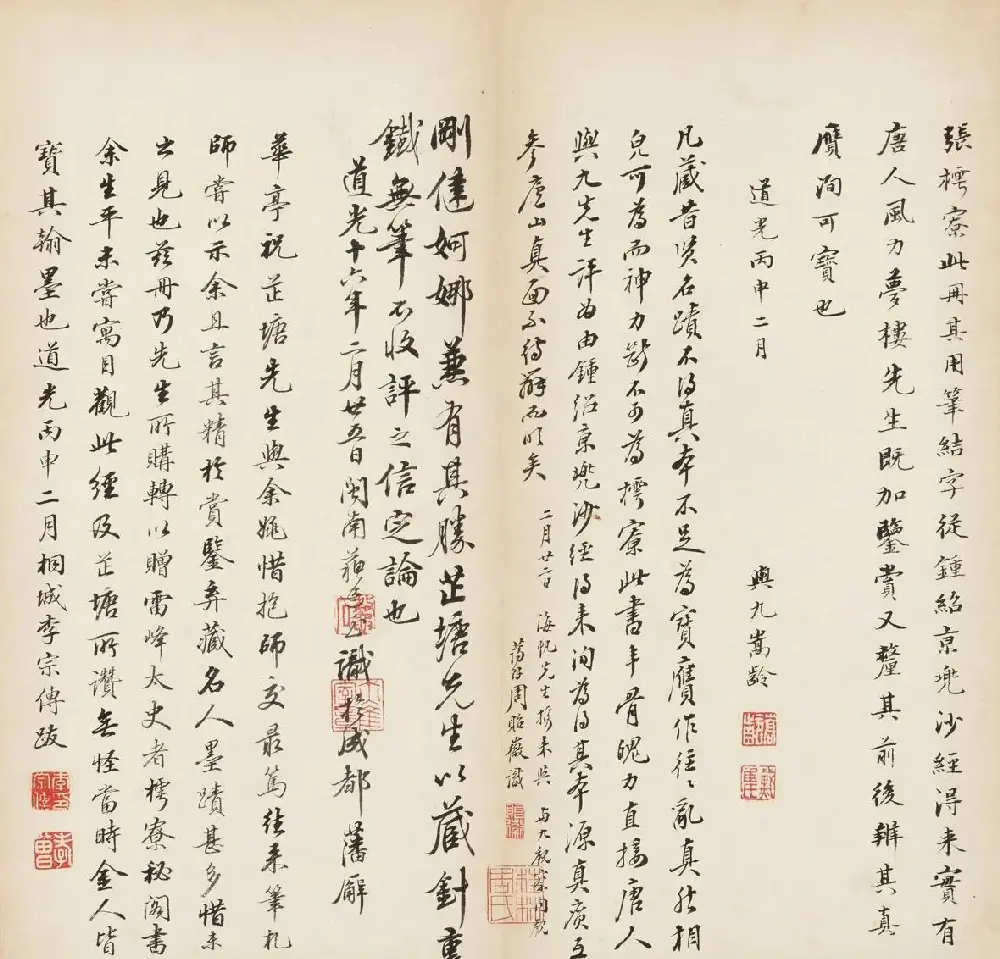 張樗寮此冊其用筆結字從鍾紹京兜沙經得来實有
唐人風力夢樓先生既加鑒賞又釐其前後辨其真
贋洵可寶也
道光丙申二月
興九嵩齡
凡藏昔賢名蹟不得真本不足為寶贋作往々亂真然相
皃可為而神力斷不可為樗寮此書丰骨魄力直接唐人
興九先生評為由鍾紹京兜沙經得来洵為得其本源真廣互
參廬山真面不待辭而明矣
二月廿 海帆先生携来與
与九 同觀
周貽徽識
剛健婀娜兼有其勝芷塘先生以藏針重
鐵無筆不收評之信定論也
道光十六年二月廿五日閩南蘇 識於成都藩廨
華亭祝芷塘先生與余姚惜抱師交最篤徃来筆札
師嘗以示余且言其精於賞鑒弆藏名人墨蹟甚多惜未
之見也茲冊乃先生所購轉以贈雷峰太史者樗寮秘閣書
余生平未嘗寓目觀此經及芷塘所讚無怪當時金人皆
寶其翰墨也道光丙申二月桐城李宗傳跋